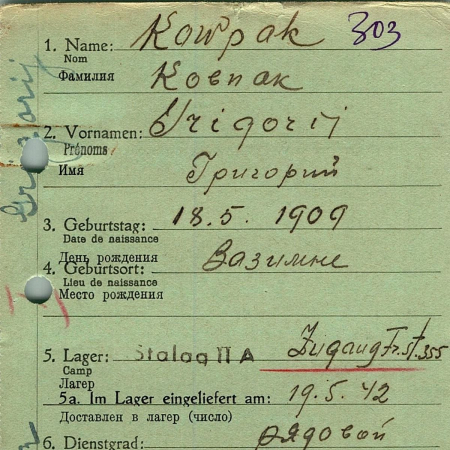 1. Name: Kowpak 303
Nom
Фамилия Ковпак
2. Vornamen: Grigorij
Prénoms
Имя Григорий
3. Geburtstag: 18.5. 1909
Date de naissance
День рождения
4. Geburtsort: Вазимне
Lieu de naissance
Место рождения
5. Lager: Stalag II A Zugang Fr. St. 355
Camp
Лагерь
5a. Im Lager eingeliefert am: 19.5.42
Доставлен в лагерь (число)
6. Dienstgrad: рядовой